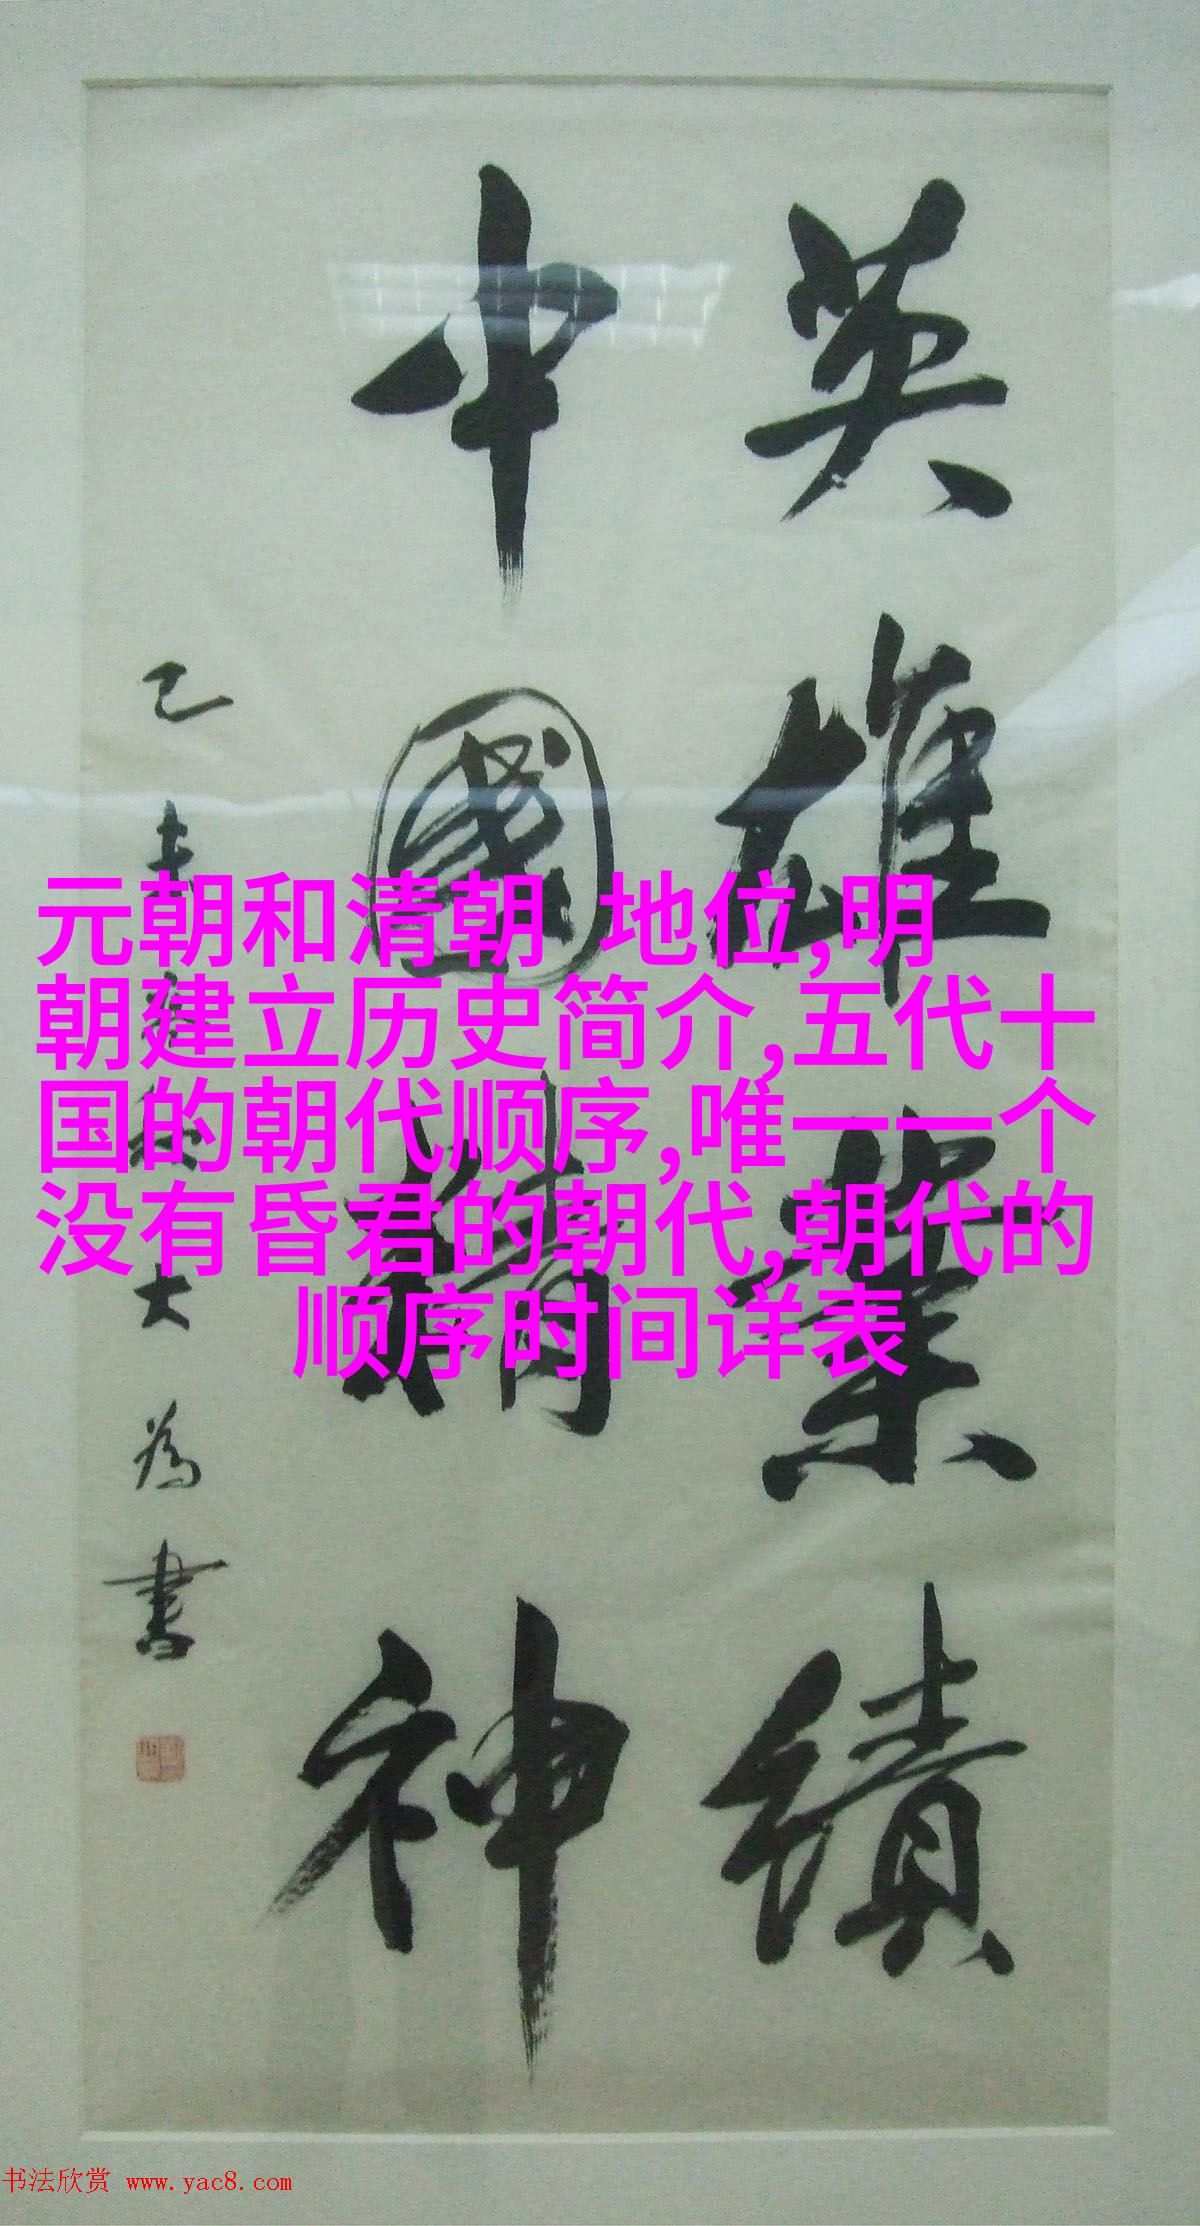 英雄業績
中國精神
大為書
元朝和清朝 地位,明
朝建立历史简介,五代十
国的朝代顺序,唯一一个
没有昏君的朝代,朝代的
顺序时间详表
书法欣赏 www.yac8.com